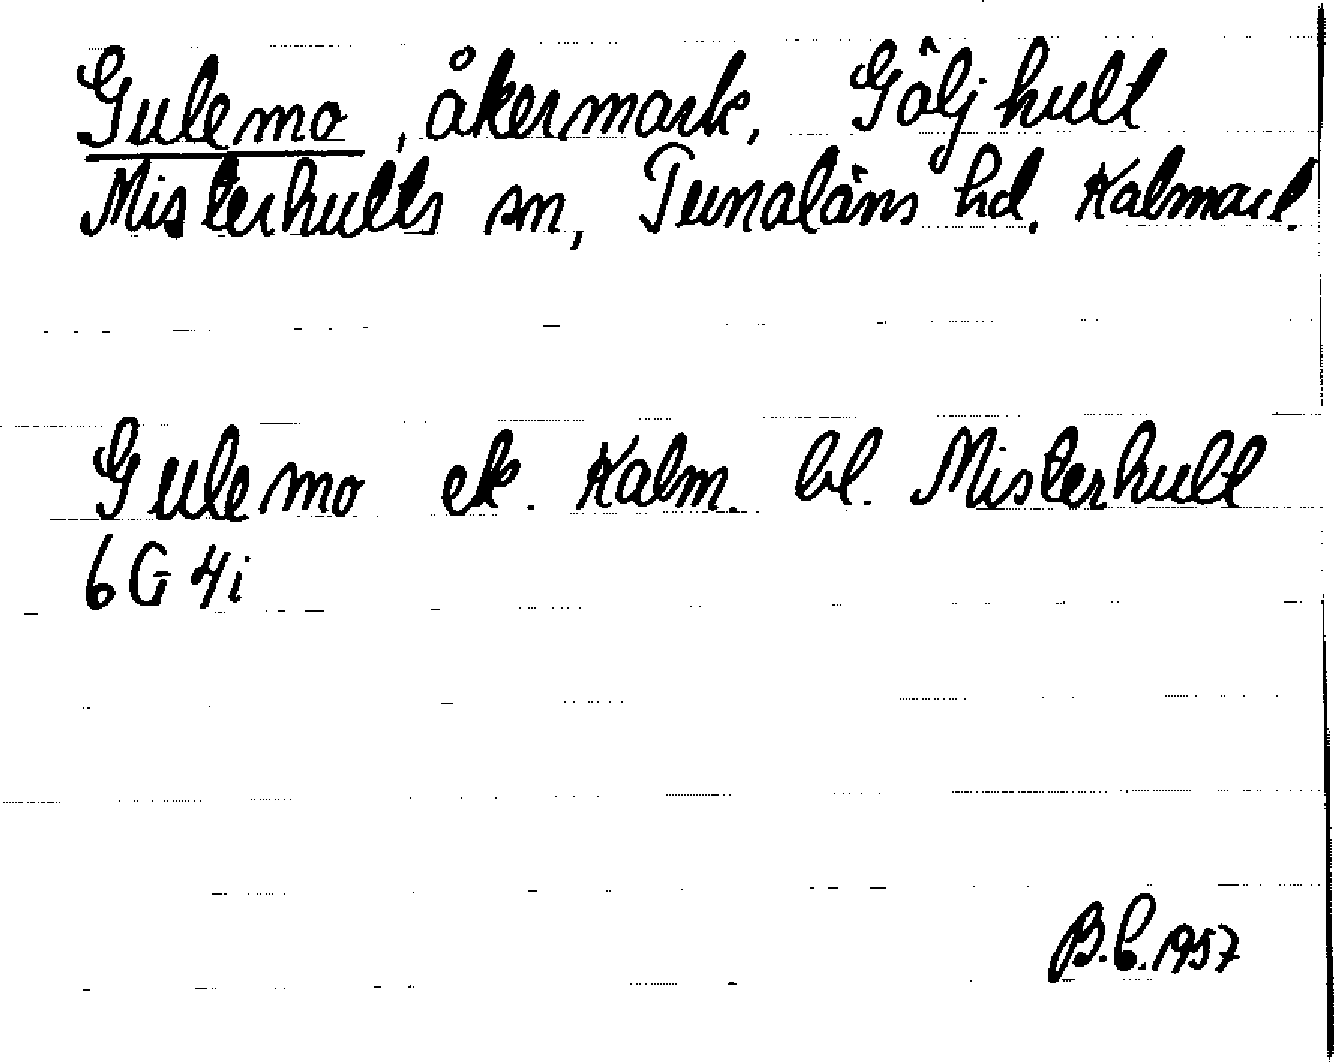 Gulemo, åkermark, Göljhult
Misterhults sn, Tunaläns hd. Kalmar l.
Gulemo ek. Kalm. bl. Misterhult
6G 4i
B.C. 1957